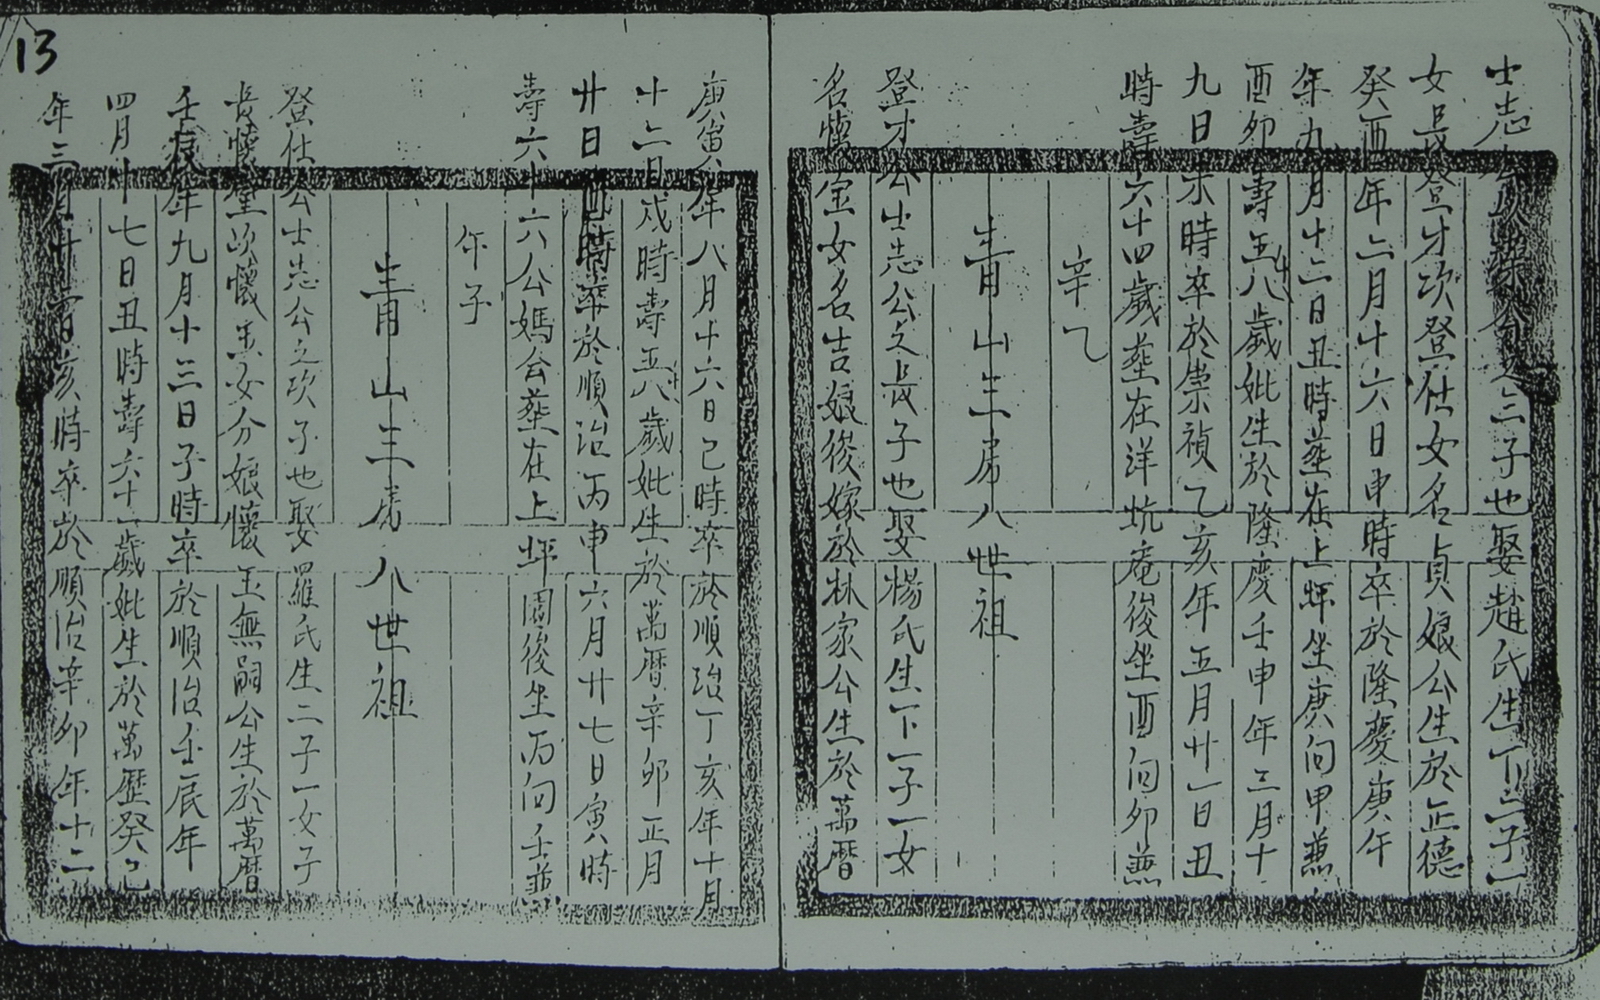 士志公庆榮公之三子也娶趙氏生下二子一
女長登才次登仕女名貞娘公生於正德
癸酉年二月十六日申時卒於隆慶庚午
年九月十二日丑時塟在上坪坐庚向甲兼
酉卯壽五十八歲妣生於隆慶壬申年三月十
九日未時卒於崇禎乙亥年五月廿一日丑
時壽六十四歲塟在洋坑庵後坐酉向卯兼
辛乙
青山三房八世祖
登才公士志公之長子也娶楊氏生下一子一女
名懷金女名吉娘後嫁於林家公生於萬暦
庚寅年八月十六日己時卒於順治丁亥年十月
十二日戍時壽五十八歲妣生於萬暦辛卯正月
廿日酉時卒於順治丙申六月廿七日寅時
壽六十六公媽仝塟在上坪園後坐丙向壬兼
午子
青山三房八世祖
登仕公士志公之次子也娶羅氏生二子一女子
長懷聖次懷玉女分娘懷玉無嗣公生於萬暦
壬辰年九月十三日子時卒於順治壬辰年
四月十七日丑時壽六十一歲妣生於萬歷癸已
年三月廿一日亥時卒於順治辛卯年十二
13